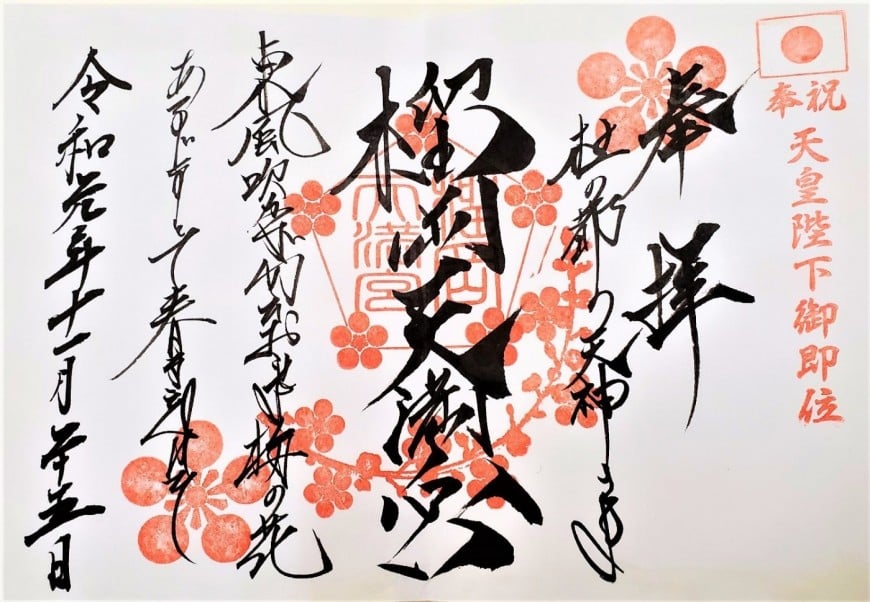 奉祝
天皇陛下御即位
奉拝
杜の都の天神さま
榴岡天満宮
榴岡
天満宮
東風吹かば匂ひおこせよ梅の花
あるじなしとて春
令和元年十一月廿五日